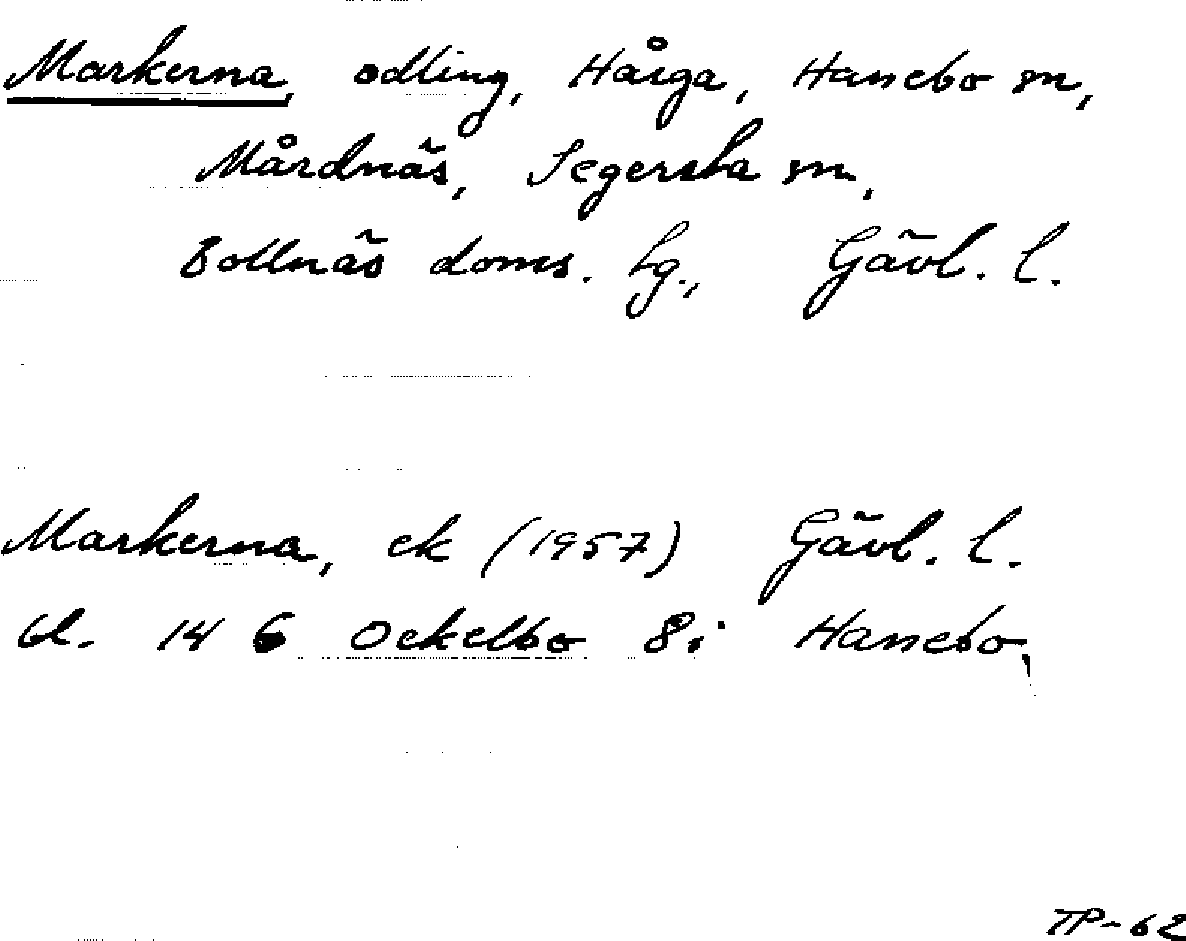 Markerna, odling, Hårga, Hanebo sn,
Mårdnäs, Segersta sn,
Bollnäs doms. lg., Gävl. l.
Markerna, ek (1957) Gävl. l.
bl. 14 G Ockelbo 8i Hanebo,
TP-62